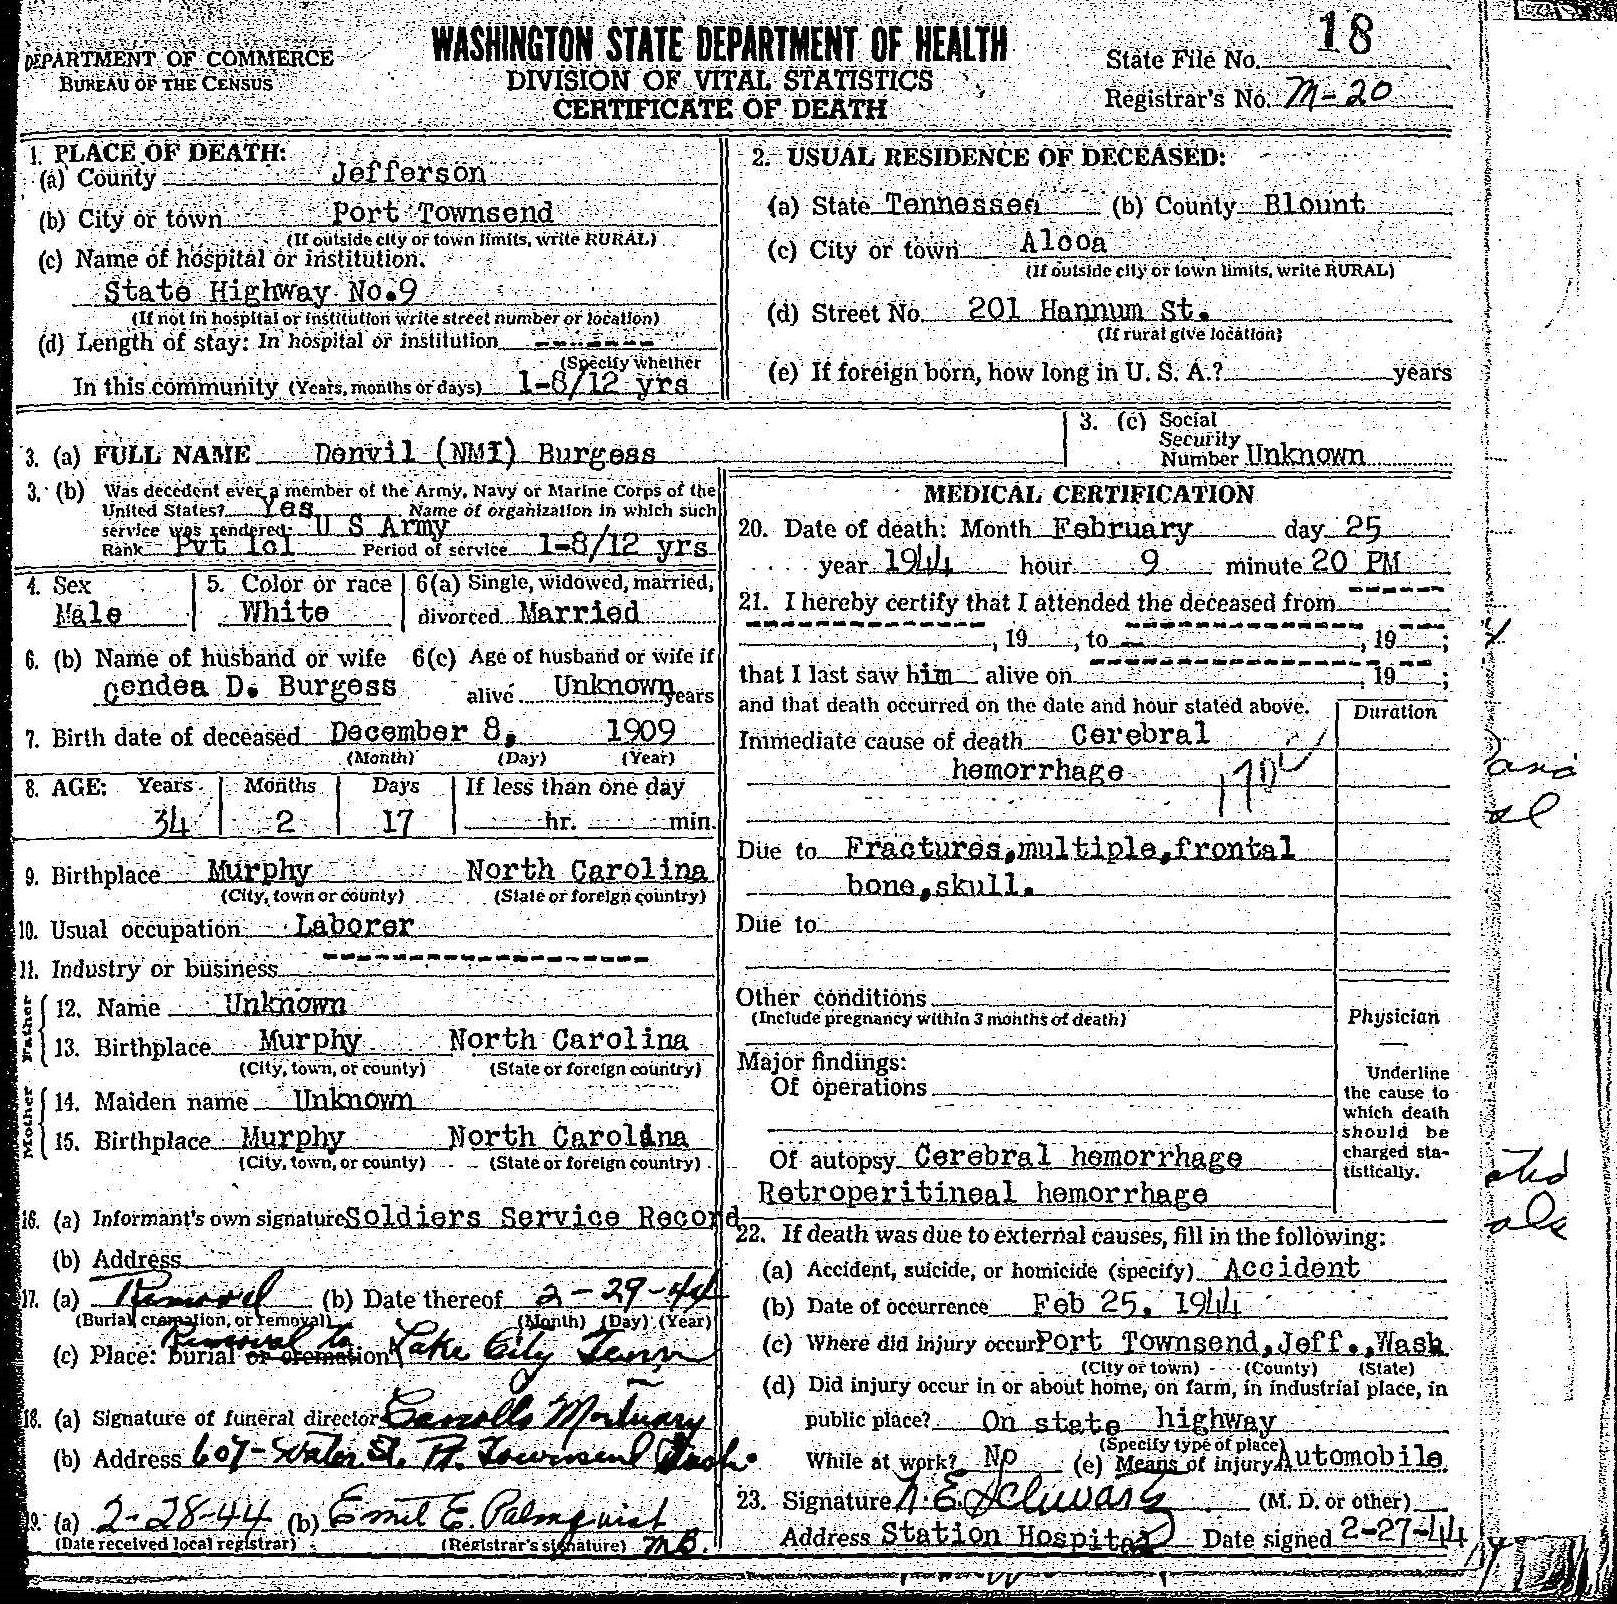 DEPARTMENT OF COMMERCE
BUREAU OF THE CENSUS
WASHINGTON STATE DEPARTMENT OF HEALTH
DIVISION OF VITAL STATISTICS
CERTIFICATE OF DEATH
State File No. 18
Registrar's No. M-20
1. PLACE OF DEATH:
(a) County Jefferson
(b) City or town Port Townsend
(If outside city or town limits, write RURAL)
(c) Name of hospital or institution.
State Highway No.9
(If not in hospital or institution write street number or location)
(d) Length of stay: In hospital or institution -------
(Specify whether
In this community (Years, months or days) 1-8/12 yrs
2. USUAL RESIDENCE OF DECEASED:
(a) State Tennessee (b) County Blount
(c) City or town Alcoa
(If outside city or town limits, write RURAL)
(d) Street No. 201 Hannum St.
(If rural give location)
(e) If foreign born, how long in U. S. A.? years
3. (a) FULL NAME Denvil (NMI) Burgess
3. (c) Social
Security
Number Unknown
3. (b) Was decedent ever a member of the Army, Navy or Marine Corps of the
United States? Yes Name of organization in which such
service was rendered: U S Army
Rank Pvt 1cl Period of service 1-8/12 yrs
4. Sex
Male
5. Color or race
White
6(a) Single, widowed, married,
divorced Married
6. (b) Name of husband or wife
Cendea D. Burgess
6(c) Age of husband or wife if
alive Unknown years
7. Birth date of deceased December 8, 1909
(Month) (Day) (Year)
8. AGE: Years Months Days If less than one day
34 2 17 hr. min.
9. Birthplace Murphy North Carolina
(City, town or county) (State or foreign country)
10. Usual occupation Laborer
11. Industry or business --------------------
Father
12. Name Unknown
13. Birthplace Murphy North Carolina
(City, town, or county) (State or foreign country)
Mother
14. Maiden name Unknown
15. Birthplace Murphy North Carolina
(City, town, or county) (State or foreign country)
16. (a) Informant's own signature Soldiers Service Record
(b) Address
17. (a) Removal (b) Date thereof 2-29-44
(Burial, cremation, or removal) (Month) (Day) (Year)
Removal to
(c) Place: burial or cremation Lake City Tenn
18. (a) Signature of funeral director Mortuary
(b) Address 607-Water St. Pt. Townsend Wash.
19. (a) 2-28-44 (b) Emil E. Palmquist
(Date received local registrar) (Registrar's signature) MB.
MEDICAL CERTIFICATION
20. Date of death: Month February day 25
year 1944 hour 9 minute 20 PM
21. I hereby certify that I attended the deceased from
, 19 , to , 19 ;
that I last saw him alive on , 19 ;
and that death occurred on the date and hour stated above.
Duration
Immediate cause of death Cerebral
hemorrhage
Due to Fractures,multiple,frontal
bone,skull.
Due to
Other conditions
(Include pregnancy within 3 months of death)
Major findings:
Of operations
Of autopsy Cerebral hemorrhage
Retroperitineal hemorrhage
Physician
Underline
the cause to
which death
should be
charged sta-
tistically.
22. If death was due to external causes, fill in the following:
(a) Accident, suicide, or homicide (specify) Accident
(b) Date of occurrence Feb 25, 1944
(c) Where did injury occur Port Townsend,Jeff.,Wash
(City or town) (County) (State)
(d) Did injury occur in or about home, on farm, in industrial place, in
public place? On state highway
(Specify type of place)
While at work? No (e) Means of injury Automobile
23. Signature N. E. Schwartz (M. D. or other)
Address Station Hospital Date signed 2-27-44